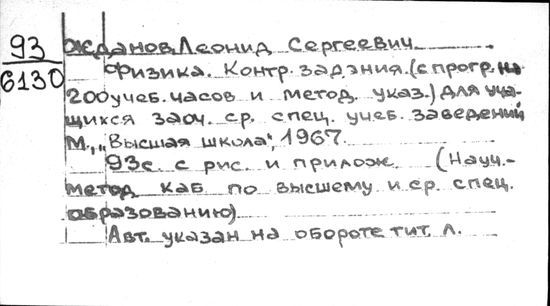 93
6130
Жданов, Леонид Сергеевич.
Физика. Контр. задания. (с прогр. на
200 учеб. часов и метод. указ.) для уча-
щихся заоч. ср. спец. учеб. заведений
М., „Высшая школа“, 1967.
93с. с рис. и прилож. (Науч.-
метод. каб. по высшему и ср. спец.
образованию)
Авт. указан на обороте тит. л.